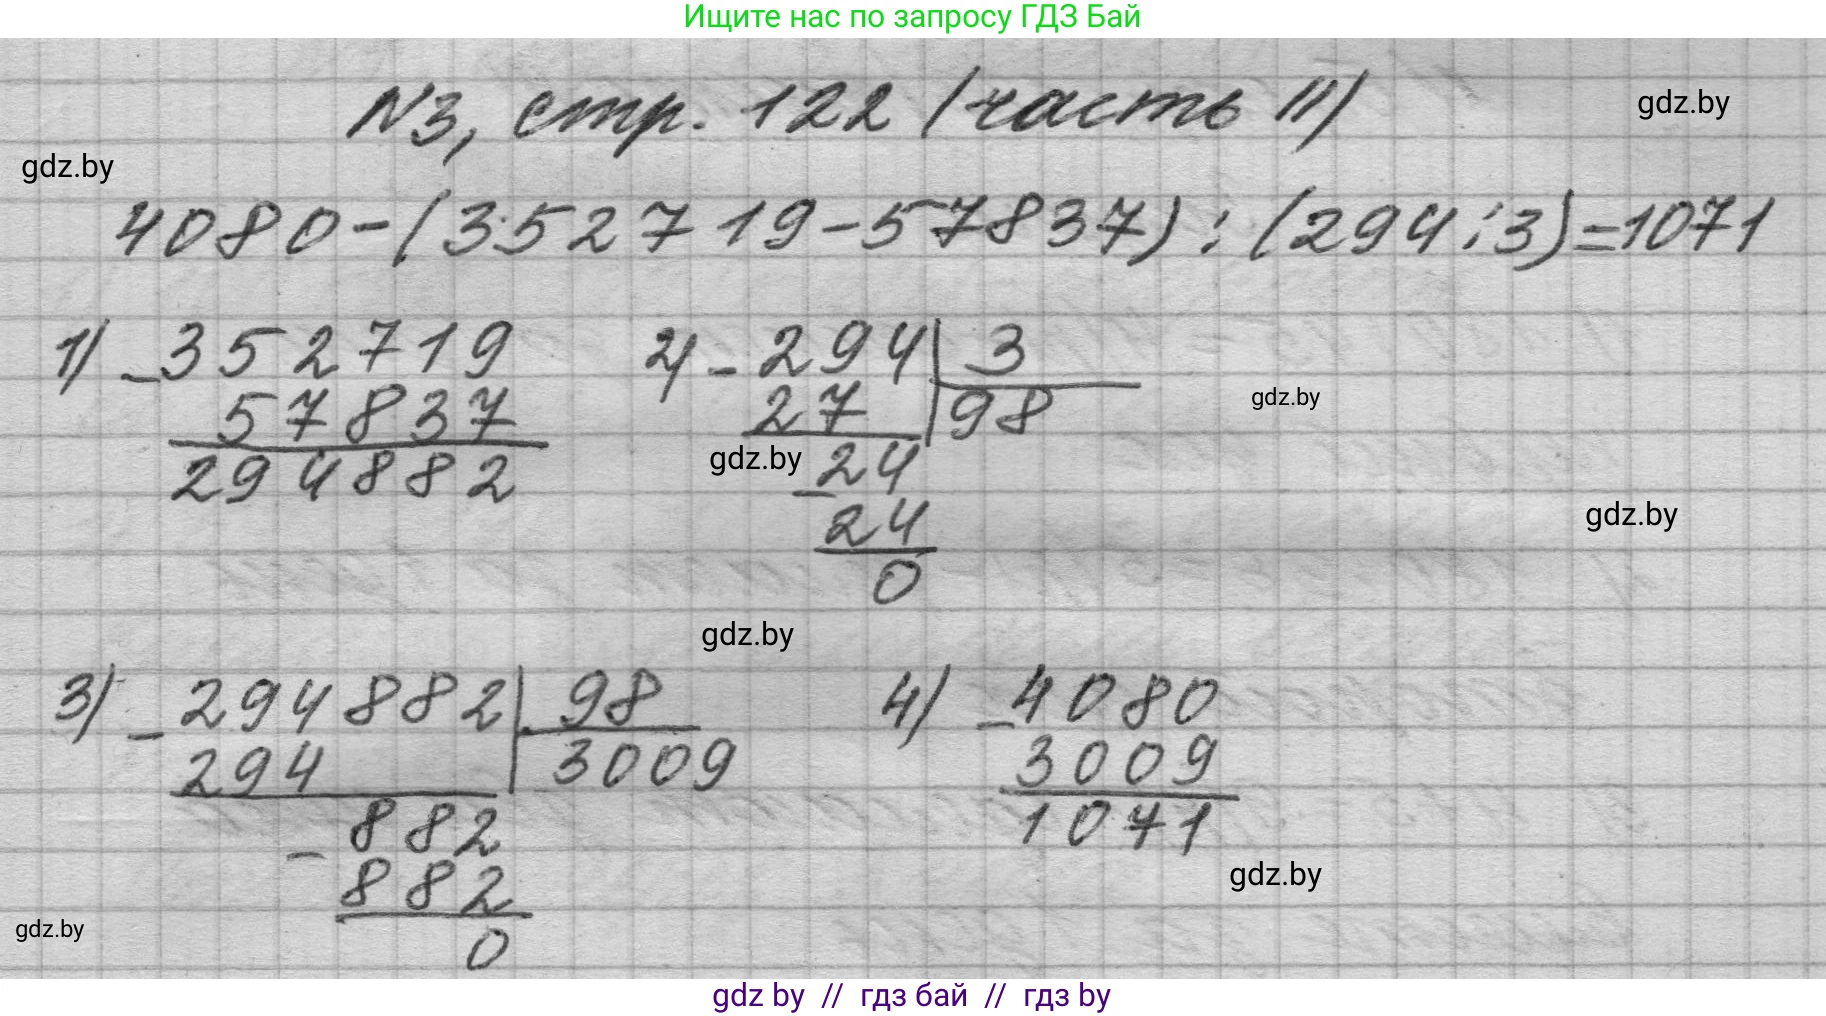 Ищите нас по запросу ГДЗ Бай
N3, стр. 122 (часть II)
gdz.by
gdz.by
4080-(352719-57837):(294:3)=1071
1) -352719
57837
294882
2) -294 3
27 98
-24
24
0
gdz.by
gdz.by
gdz.by
gdz.by
3) -294882 98
294 3009
-882
882
0
4) -4080
3009
1071
gdz.by
gdz.by
gdz by // гдз бай // гдз by